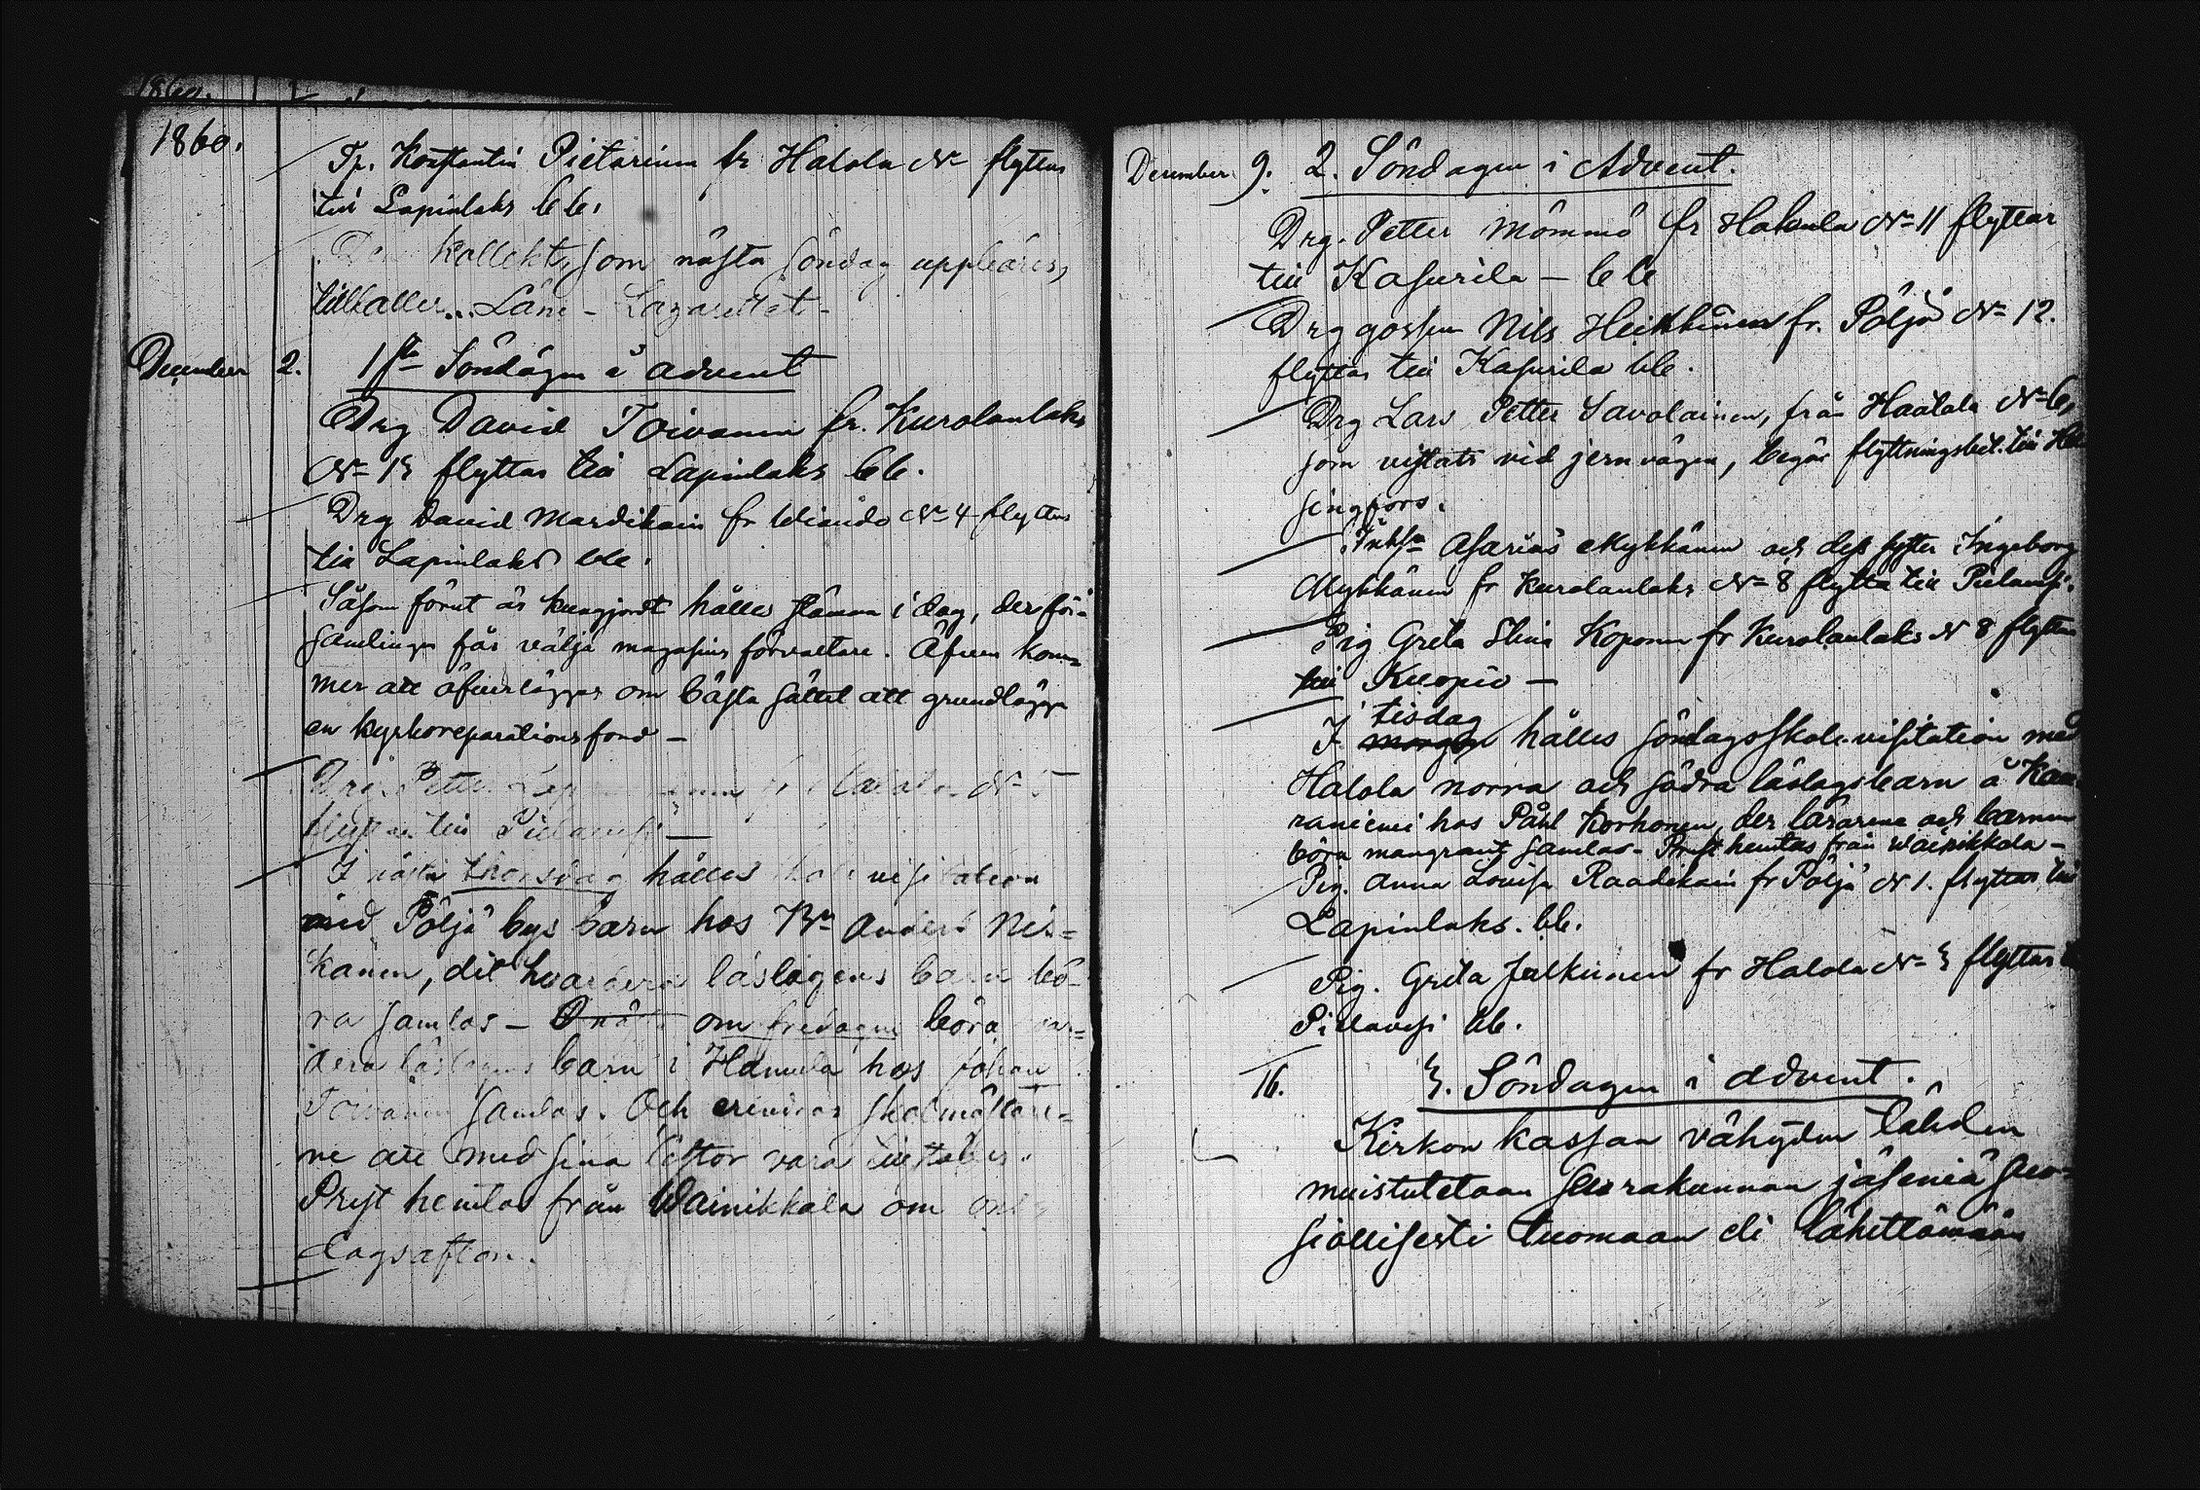 1860.
Tp. Konstantin Pietarinen fr Halola No flyttar
till Lapinlaks bb.
Den kollekt, som nästa söndag uppbäres,
tillfaller Läns-Lazarettet-
December 2. 1sta Söndagen i advent
Drg David Toivanen fr. Kurolanlaks
No 13 flyttar till Lapinlaks bb.
Drg David Mardikain fr Wiando No 4 flyttar
till Lapinlaks bb.
Såsom förut är kungjordt hålles stämma i dag, der för-
samlingen får välja magasins förvaltare. Äfven kom-
mer att öfverläggas om bästa sättet att grundlägga
en kyrkoreparationsfond-
Drg. Petter No 5
flyttar till Pielavesi-
I nästa thorsdag hålles skolvisitation
med Pöljä bys barn hos Bn Anders Nis=
kanen, dit hvardera läslagens barn bö-
ra samlas- om fredagen böra hvar=
dera läslagens barn i Hamula hos Johan
Toivanen samlas. Och erindras skolmästare=
ne att med sina listor vara tillstädes.
Prest hemtas från Wainikkala om ons
dagsafton.
December 9. 2. Söndagen i Advent.
Drg. Petter Mömmö fr Hakula No 11 flyttar
till Kasurila - bb
Drg gossen Nils Heikkinen fr. Pöljä No 12.
flyttar till Kasurila bb.
Drg Lars Petter Savolainen, från Haatala No 6,
som vistats vid jernvägen, begär flyttningsbet. till Hel
singfors.
Inhs Asarias Mykkänen och dess syster Ingeborg
Mykkänen fr Kurolanlaks No 8 flytta till Pielavesi.
Pig Greta Stina Koponen fr Kurolanlaks N 8 flyttar
till Kuopio -
tisdag
I morgon hålles söndagsskole-visitation med
Halola norra och södra läslagsbarn å Kau
raniemi hos Påhl Korhonen, der lärarene och barnen
böra mangrant samlas- Prest hemtas från Wäinikkala-
Pig. Anna Lovisa Raadikain fr Pöljä N 1. flyttar till
Lapinlaks. bb.
Pig. Greta Jalkanen fr Halola No 3 flyttar
Pielavesi bb.
16. 3. Söndagen i advent.
Kirkon kassan vähyden tähden
muistutetaan seurakunnan jäseniä suo-
siollisesti tuomaan eli lähettämään